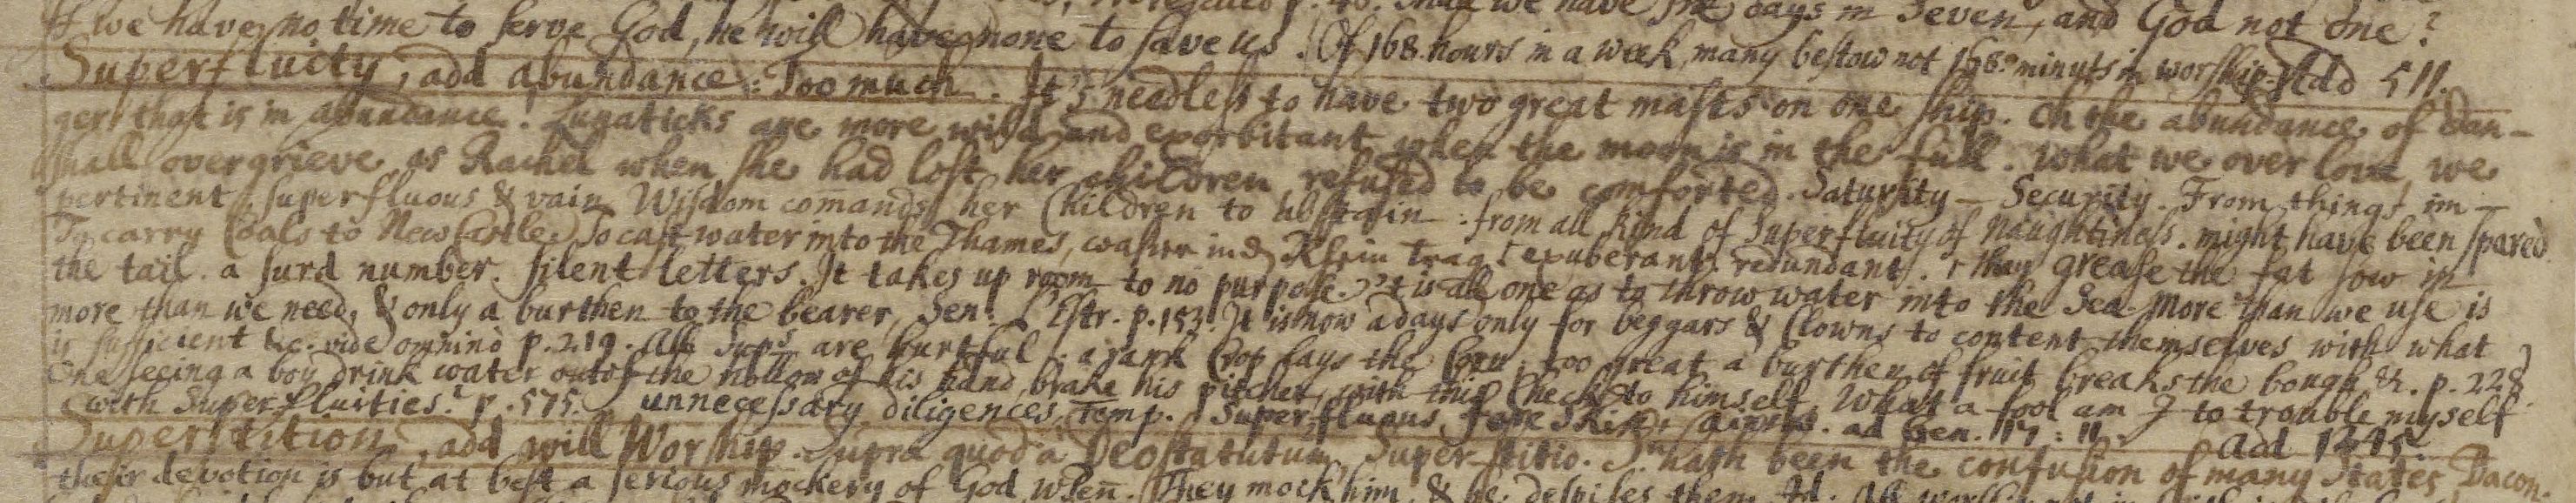 we have six days in Seven, and God not one?
If we have no time to serve God, he will have none to save us. Of 168 hours in a week, many bestow not 168 minuts in worship. Add 511.
Superfluity, add abundance: Too much. It's needless to have two great masts on one ship. Oh the abundance of dan-
ger that is in abundance! Lunaticks are more wild and exorbitant when the moon is in the full. What we over love, we
shall overgrieve, as Rachel when she had lost her children refused to be comforted. Saturity - Security. From things im-
pertinent, superfluous & vain Wisdom comands her Children to abstain: from all kind of Superfluity of Naughtiness. might have been spared.
To carry Coals to New Castle. To cast water into the Thames, exuberant. redundant. they grease the fat sow in
the tail. a surd number. silent letters. It takes up room to no purpose. 't is all one as to throw water into the Sea. More than we use is
more than we need, & only a burthen to the bearer, Sen. L'Estr. p. 153. It is now a days only for beggars & Clowns to content themselves with what
is sufficient &c. vide omnino p. 219. All are hurtful. a rank Crop lays the Corn. too great a burthen of fruit breaks the bough &c. p. 228.
One seeing a boy drink water out of the hollow of his hand, brake his pitcher, with this Check to himself, What a fool am I to trouble myself
with Superfluities? p. 575. unnecessary diligences, Temp. Superfluous, fore Skin, ad Gen. 17:11. Add
Superstition, add will Worship. Supra quod a Deo statutum, Super-stitio. hath been the confusion of many States. Bacon.
their devotion is but at best a serious mockery of God, They mock him, & he despises them